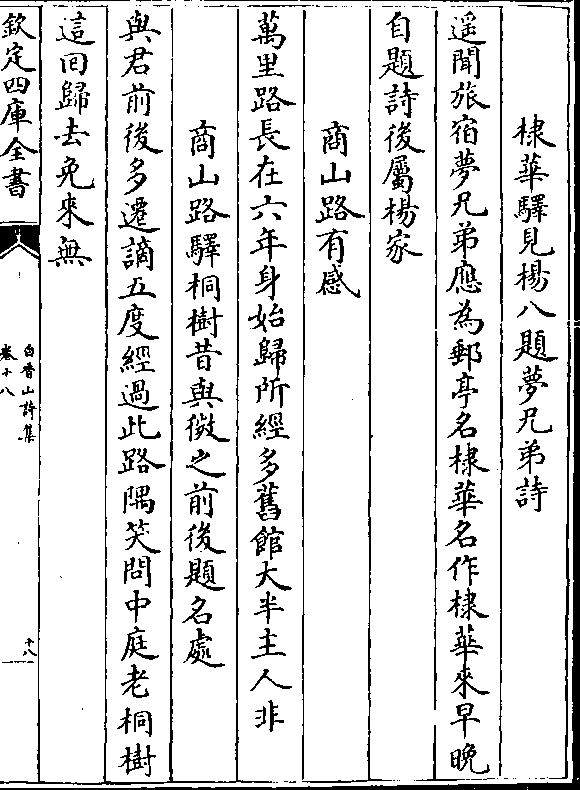 棣華驛見楊八題夢兄弟詩
遥聞旅宿夢兄弟應為郵亭名棣華名作棣華來早晚
自題詩後屬楊家
商山路有感
萬里路長在六年身始歸所經多舊館大半主人非
商山路驛桐樹昔與微之前後題名處
與君前後多遷謫五度經過此路隅笑問中庭老桐樹
這回歸去免來無
欽定四庫全書
白香山詩集
卷十八
十八